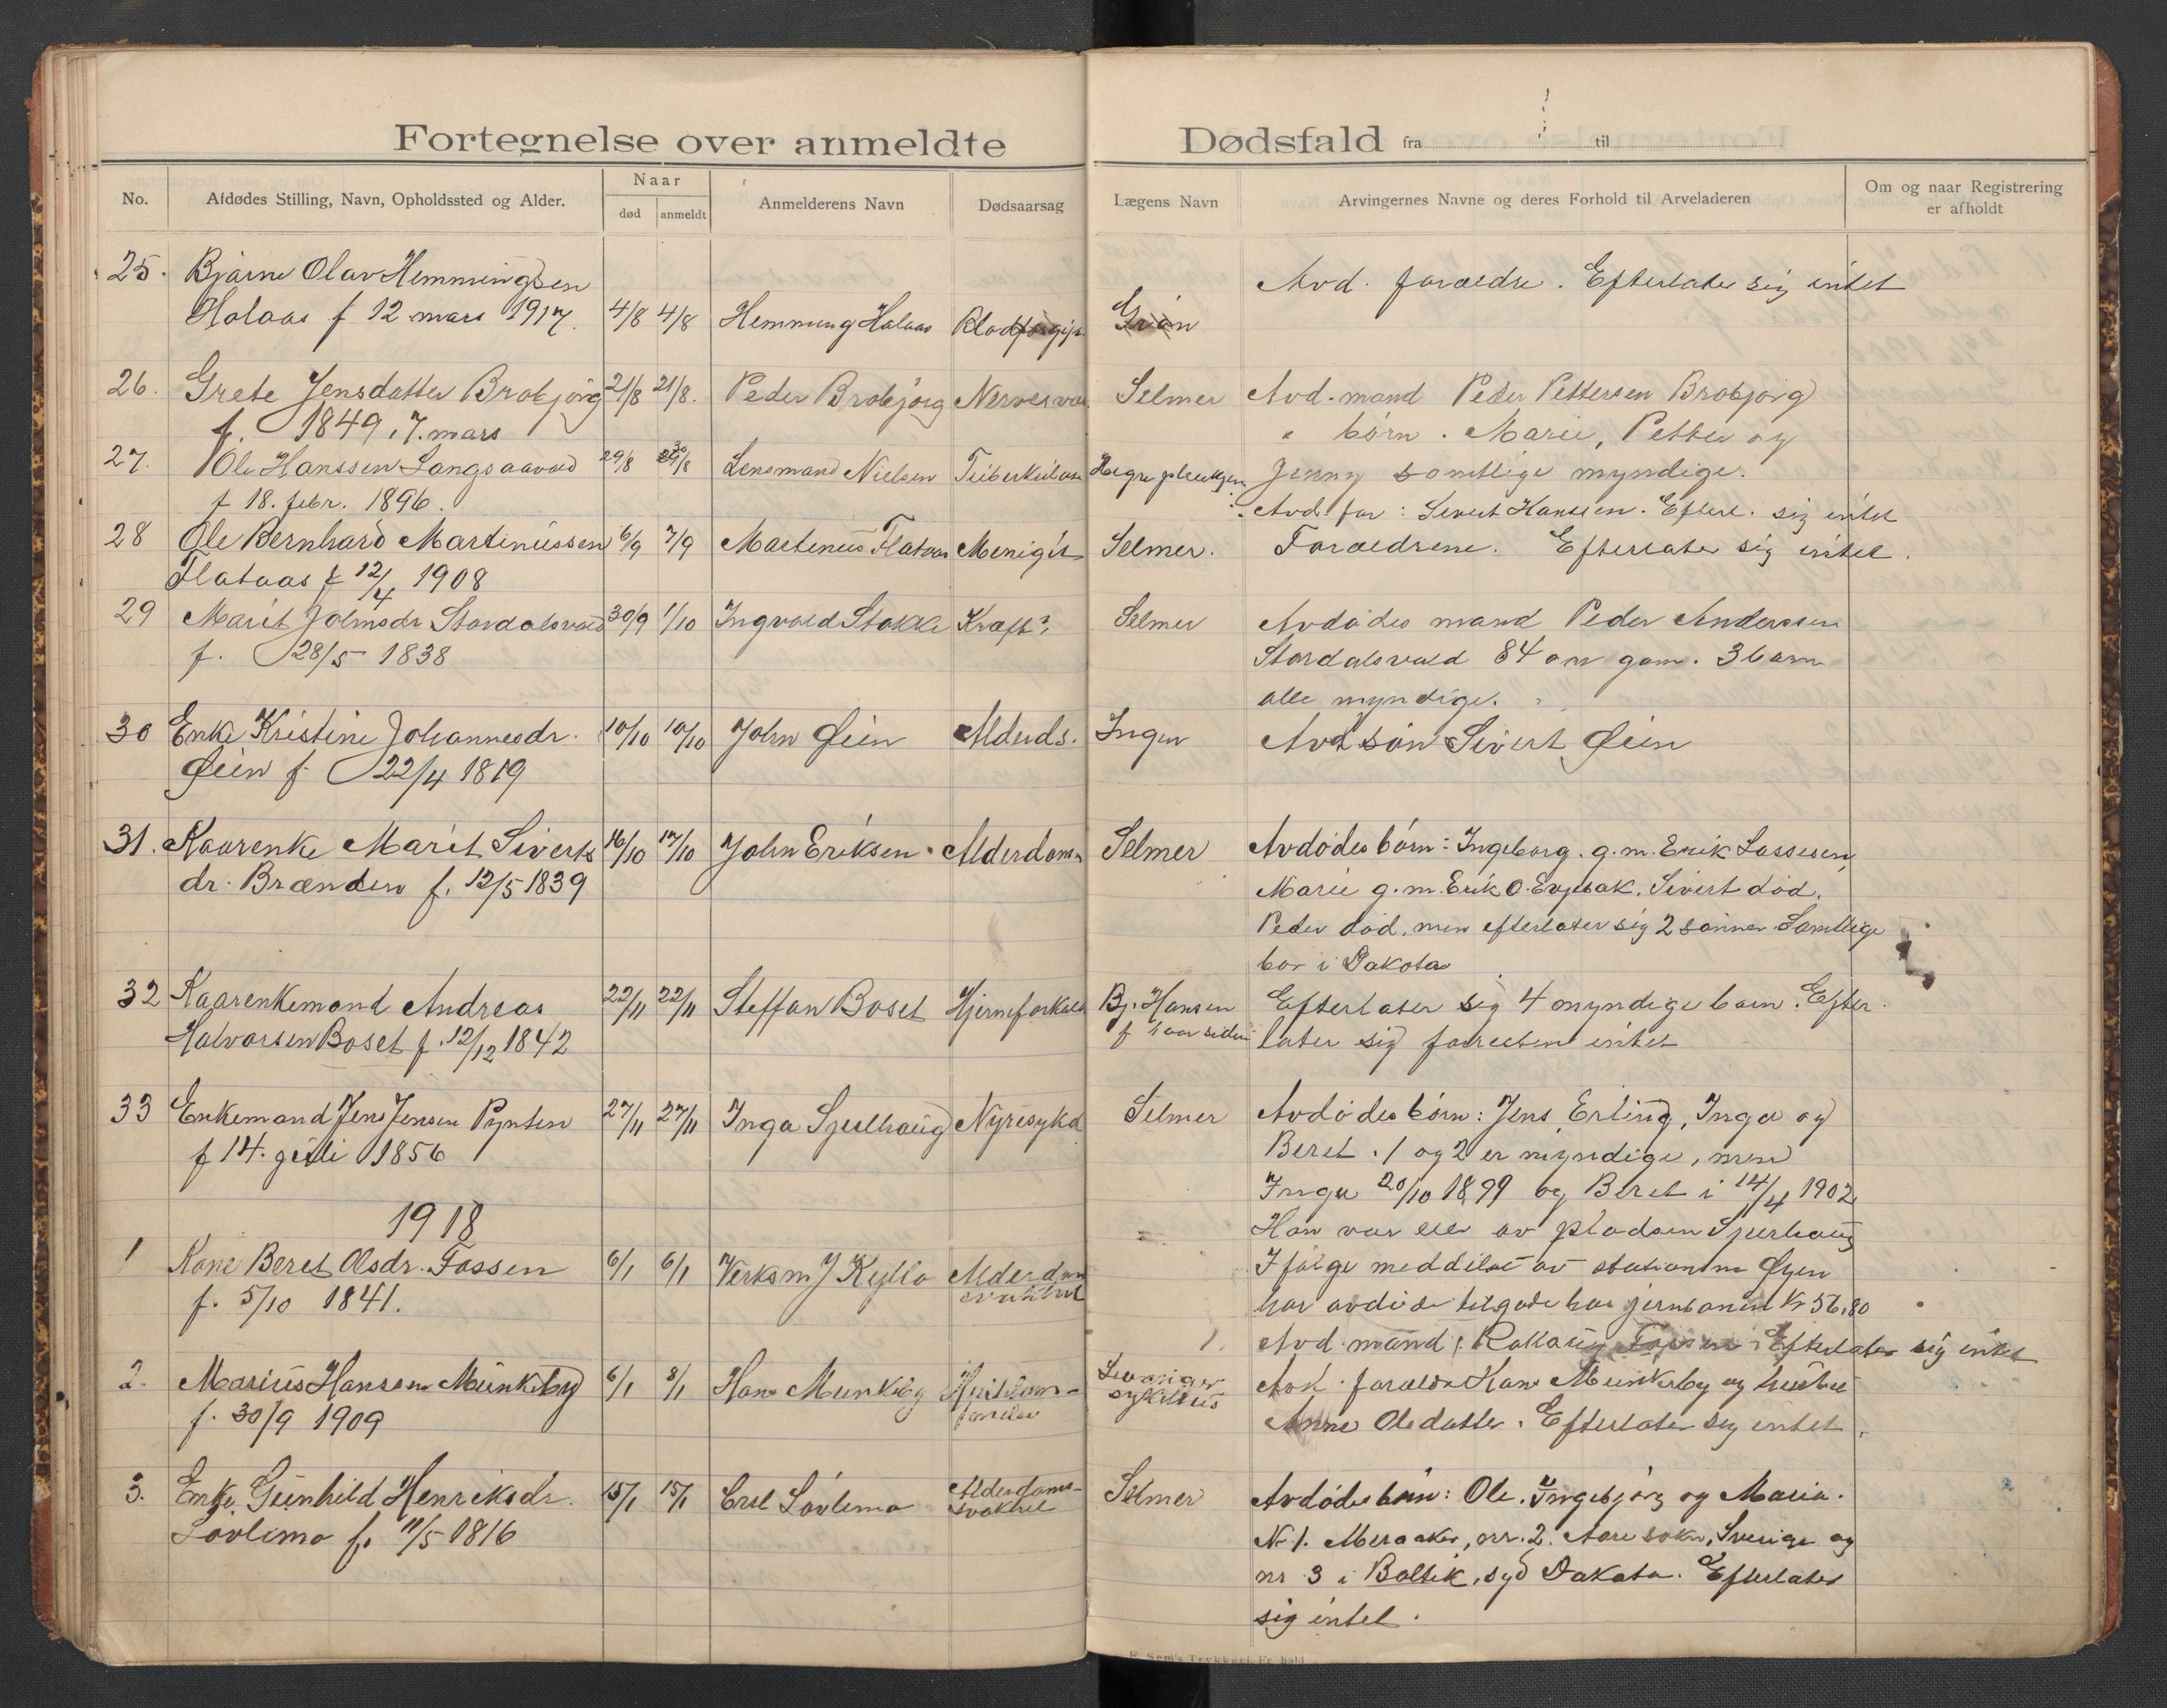 Fortegnelse over anmeldte Dødsfald fra til
No. Afdødes Stilling, Navn, Opholdssted og Alder. Naar død anmeldt Anmelderens Navn Dødsaarsag Lægens Navn Arvingernes Navne og deres Forhold til Arveladeren Om og naar Registrering er afholdt
25. Bjarne Olav Hemmingsen Avd. foraeldre. Efterlater sig intet
Halaas f 12 mars 1917. 4/8 4/8 Hemming Halaas Blodforgift. Grön
26. Grete Jensdatter Brobjörg 21/8 21/8. Peder Brobjörg Selmer Avd. mand Peder Pettersen Brobjörg
f. 1849, 7. mars " børn. Marie, Petter og
27. Ole Hanssen Langsaavold 29/8 30/8 Lensmand Nielsen Tuberkulose Hegre pleiehjem Jenny samtlige myndige.
f 18. febr. 1896. Avd. far: Sivert Hanssen. Efterl. sig intet
28 Ole Bernhard Martinussen 6/9 7/9 Martinus Flataas Menigit Selmer. Foraeldrene. Efterlater sig intet.
Flataas f 12/4 1908
29 Marit Johnsdr Stordalsvold 30/9 1/10 Ingvald Stokke Kræft? Selmer Avdødes mand Peder Anderssen
f. 28/5 1838 Stordalsvold 84 aar gam. 3 barn
alle myndige.
30 Enke Kristine Johannesdr. 10/10 10/10 John Øien Alderds. Ingen Avd sön Sivert Øien
Øien f 22/4 1819
31. Kaarenke Marit Siverts 16/10 17/10 John Eriksen Alderdom Selmer Avdødes børn: Ingeborg. g.m. Erik Lassesen,
dr. Brænden f. 12/5 1839 Marie g.m. Erik O. Evjebak. Sivert död.
Peder död, men efterlater sig 2 sönner Samtlige
bor i Dakota
32 Kaarenkemand Andreas 22/11 22/11 Steffan Boset Bj. Hansen Efterlater sig 4 myndige barn. Efter
Halvorsen Boset f. 12/12 1842 f 1 aar siden later sig forresten intet
33 Enkemand Jens Jensen Pynten 27/11 27/11 Inga Sjulhaug Nyresykd Selmer Avdødes börn: Jens, Erling, Inga og
f 14. juli 1856 Beret. 1 og 2 er myndige, men
Inga 20/10 1899 og Beret i 14/4 1902
1918 Han var eier av pladsen Sjurhaug
1 Kone Beret Olsdr. Fossen 6/1 6/1 Verksm J Kyllo Alderdom svakhet I følge meddelse av stationsm Øyen
f. 5/10 1841. har avdöde tilgode hos jernbanen Kr 56,80
Avd. mand Efterlater sig intet
2. Marius Hansen Munkeby 6/1 8/1 Hans Munkeby Levanger sykehus Avd. foraeldr Hans Munkeby og hustru
f. 30/9 1909 Anne Olsdatter. Efterlater sig intet.
3. Enke Gunhild Henriksdr. 15/1 15/1 Løvlimo Alderdoms-svakhet Selmer Avdødes børn: Ole, Ingebjörg og Maria.
Løvlimo f. 11/5 1816 Nr 1. Meraaker, nr. 2. Aare sokn, Sverige og
nr 3 i Baltik, syd Dakota. Efterlater
sig intet.